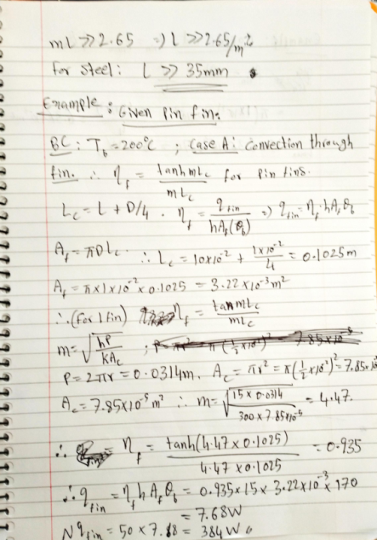 mL >> 2.65 => L >> 2.65/m
For Steel: L >> 35mm
Example: Given Pin fin.
BC: T_b = 200°C ; Case A: Convection through
fin. ∴ η_f = tanh mLc / mLc for Pin fins.
Lc = L + D/4 . η_f = q_fin / hA_f(θ_b) => q_fin = η_f hA_f θ_b
A_f = πDLc ∴ Lc = 10x10^-2 + 1x10^-2 / 4 = 0.1025m
A_f = π x 1x10^-2 x 0.1025 = 3.22x10^-3 m²
∴ (For 1 fin) η_f = tanh mLc / mLc
m = √(hP / KAc) ;
P = 2πr = 0.0314m, Ac = πr² = π(½x10^-2)² = 7.85x10^-5
Ac = 7.85x10^-5 m² ∴ m = √(15 x 0.0314 / 300 x 7.85x10^-5) = 4.47.
∴ η_f = tanh(4.47 x 0.1025) / 4.47 x 0.1025 = 0.935
∴ q_fin = η_f h A_f θ_b = 0.935 x 15 x 3.22x10^-3 x 170
= 7.68W
N q_fin = 50 x 7.68 = 384W